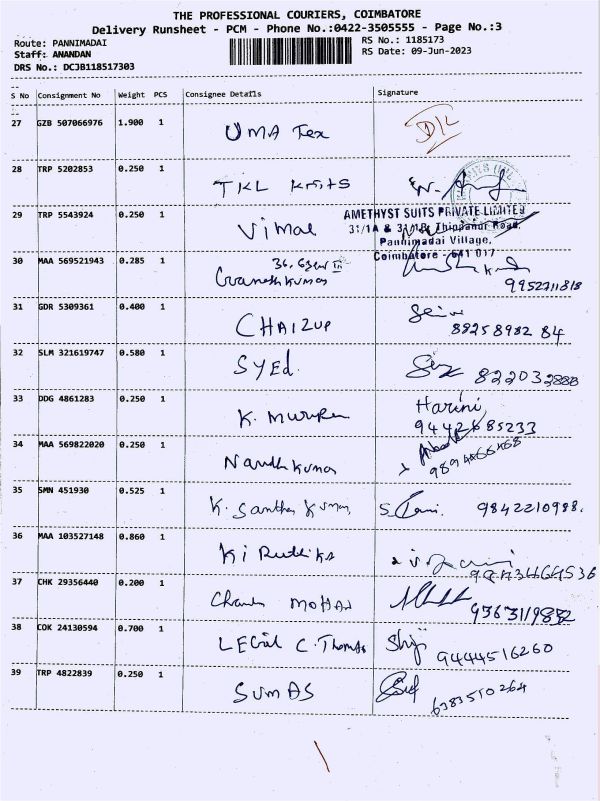 THE PROFESSIONAL COURIERS, COIMBATORE
Delivery Runsheet - PCM - Phone No.:0422-3505555 - Page No.:3
Route: PANNIMADAI
RS No.: 1185173
Staff: ANANDAN
RS Date: 09-Jun-2023
DRS No.: DCJB118517303
S No Consignment No Weight PCS Consignee Details Signature
27 GZB 507066976 1.900 1 UMA Tex D/L
28 TRP 5202853 0.250 1 TKL Knits
29 TRP 5543924 0.250 1 Vimal
AMETHYST SUITS PRIVATE LIMITED
31/1A & 31/1B, Thippanur Road,
Pannimadai Village,
Coimbatore - 641 017
30 MAA 569521943 0.285 1
9952711818
31 GDR 5309361 0.400 1 CHAIZUP
88258982 84
32 SLM 321619747 0.580 1 SYEd.
33 DDG 4861283 0.250 1 K. Murugan Harini
34 MAA 569822020 0.250 1 Nandhkumar
35 SMN 451930 0.525 1 K. Santhos Kumar 9842210988.
36 MAA 103527148 0.860 1 Ki Ruthika
37 CHK 29356440 0.200 1 MOHAN
38 COK 24130594 0.700 1 C. Thomas Shiji
9444516260
39 TRP 4822839 0.250 1 SUMAS
6383510264